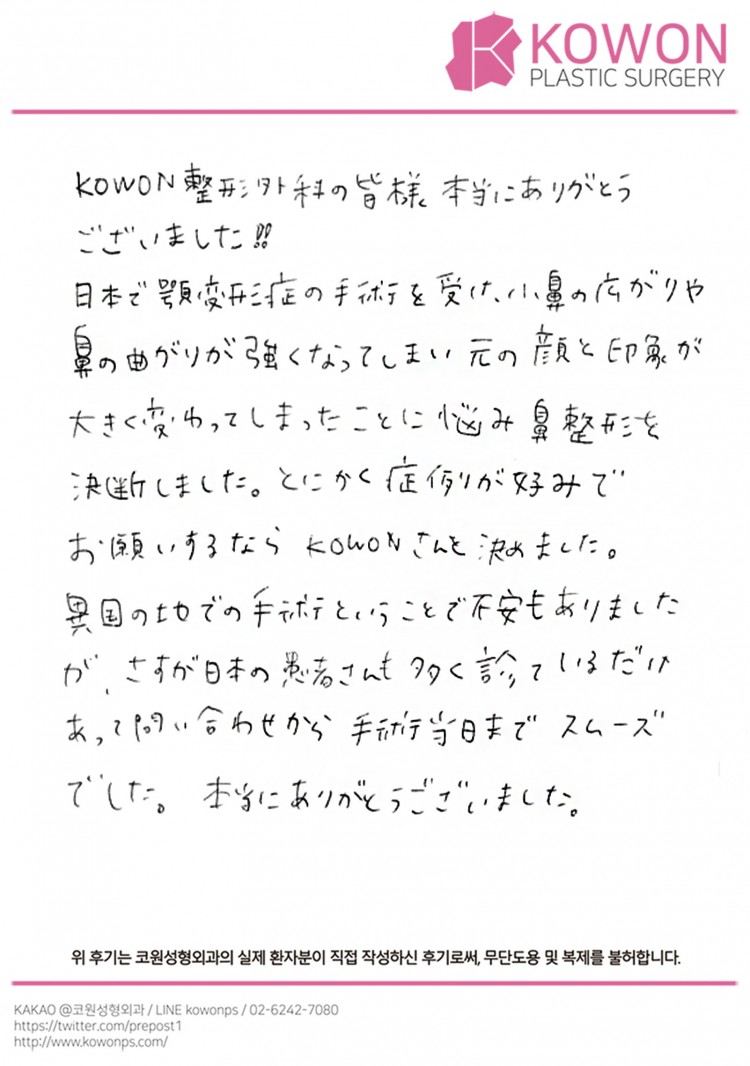 KOWON
PLASTIC SURGERY
KOWON整形外科の皆様 本当にありがとう
ございました!!
日本で顎変形症の手術を受け、小鼻の広がりや
鼻の曲がりが強くなってしまい 元の顔と印象が
大きく変わってしまったことに悩み鼻整形を
決断しました。とにかく症例が好みで
お願いするなら KOWONさんと決めました。
異国の地での手術ということで不安もありました
が、さすが日本の患者さんも多く診ているだけ
あって問い合わせから 手術当日まで スムーズ
でした。 本当にありがとうございました。
위 후기는 코원성형외과의 실제 환자분이 직접 작성하신 후기로써, 무단도용 및 복제를 불허합니다.
KAKAO @코원성형외과 / LINE kowonps / 02-6242-7080
https://twitter.com/prepost1
http://www.kowonps.com/